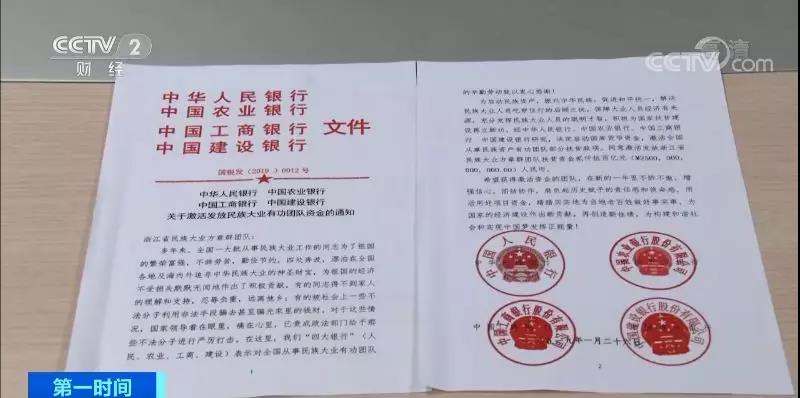 CCTV 2
财经
高清
CCTV.com
中华人民银行
中国农业银行
中国工商银行
中国建设银行
文件
国银发（2019）0012号
中华人民银行 中国农业银行
中国工商银行 中国建设银行
关于激活发放民族大业有功团队资金的通知
浙江省民族大业方章群团队：
多年来，全国一大批从事民族大业工作的同志为了祖国
的繁荣富强，不辞劳苦，勤俭节约，四处奔波，漂泊在全国
各地及海内外追寻中华民族大业的神圣财宝，为祖国的经济
不受损失默默无闻地作出了积极贡献。有的同志得不到家人
的理解和支持，忍辱负重，远离他乡；有的被社会上一些不
法分子利用非法手段骗去甚至骗光家里的钱财，对于这些情
况，国家领导看在眼里，痛在心里，已责成政法部门给予那
些不法分子进行严厉打击。在这里，我们“四大银行”（人
民、农业、工商、建设）表示对全国从事民族大业有功团队
1
的辛勤劳动致以衷心感谢！
为启动民族资产，振兴中华民族，促进和平统一，解决
民族大业人员吃穿住行的后顾之忧，保障大业人员经济有来
源，充分发挥民族大业人员的聪明才智，积极为国家扶贫建
设再立新功。经中华人民银行、中国农业银行、中国工商银
行 中国建设银行研究，决定启动国库货币资金，激活全国
从事民族资产有功团队部分扶贫款项。同意激活发放浙江省
民族大业方章群团队扶贫资金贰仟伍百亿元（￥2500，000，
000，000.00）人民币。
希望获得激活资金的团队，在新的一年里不骄不傲，增
强信心，团结协作，肩负起历史赋予的责任感和使命感，用
活用好项目资金，踏踏实实地为当地老百姓做好事实事，为
国家的经济建设作出新贡献，再创造新佳绩，为构建和谐社
会和实现中国梦发挥正能量！
中国人民银行
中国农业银行股份有限公司
中国工商银行股份有限公司
中国建设银行股份有限公司
年一月二十六
2
第一时间